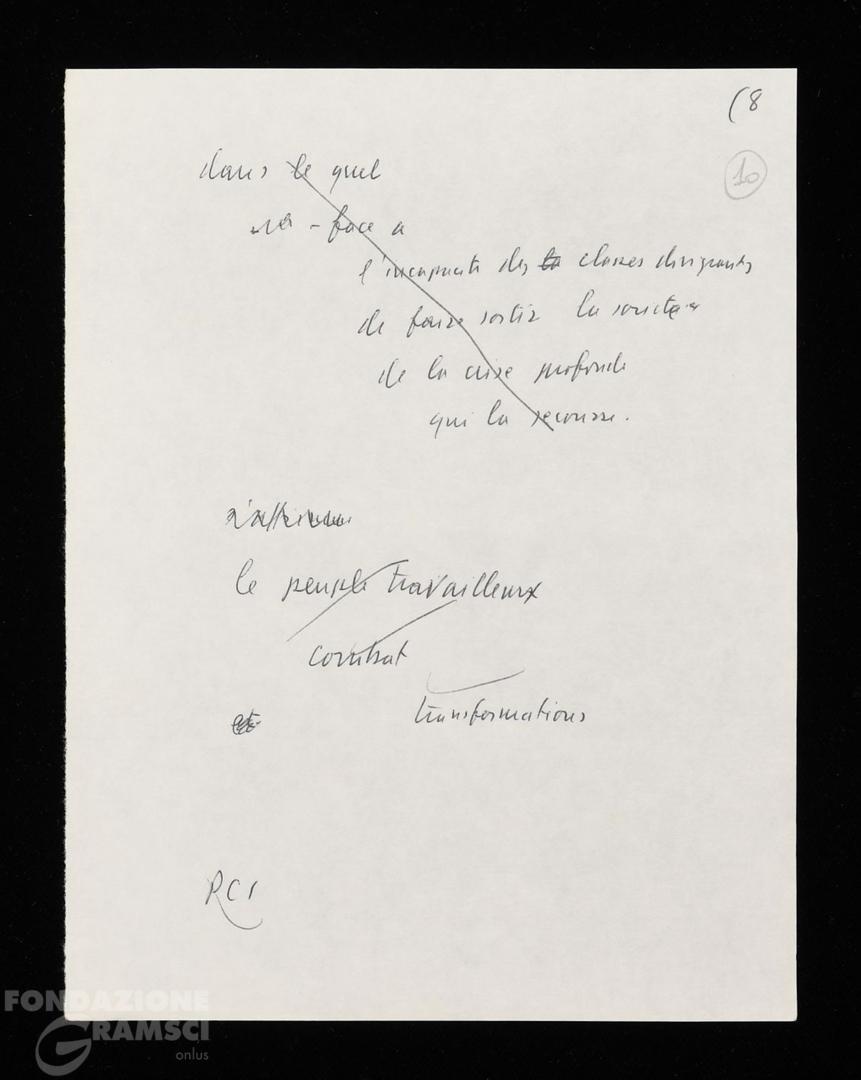 (8
10
dans le quel
- face a
l'incapacité des la classes dirigeants
de faire sortir la société
de la crise profonde
qui la secousse.
le peuple travailleux
combat
transformations
PCI
FONDAZIONE
GRAMSCI
onlus